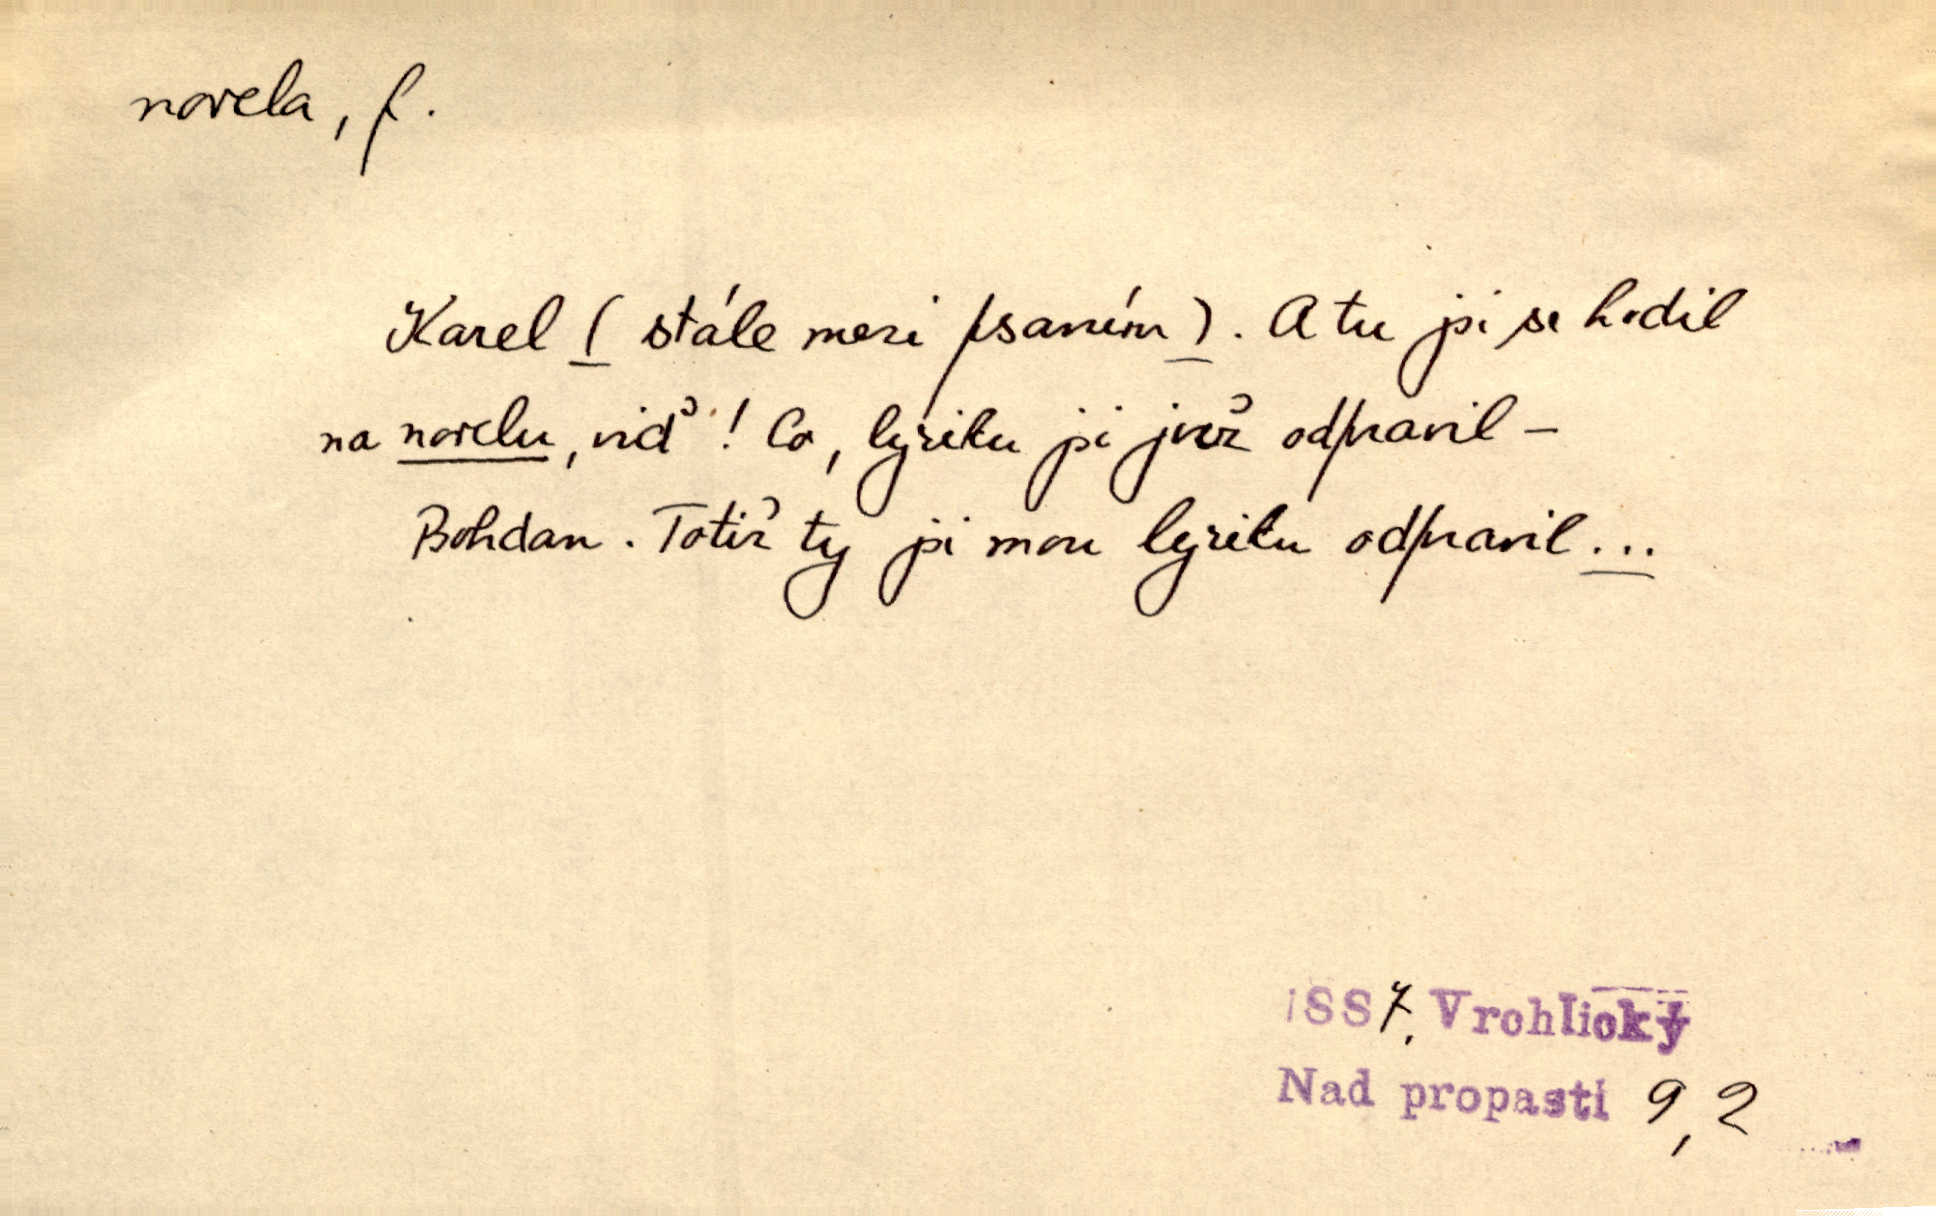 novela, f.
Karel ( stále mezi psaním ). A tu jsi se hodil
na novelu, viď ! Co, lyriku jsi již odpravil –
Bohdan. Totiž ty jsi mou lyriku odpravil...
SS 7. Vrchlický
Nad propastí 9, 2